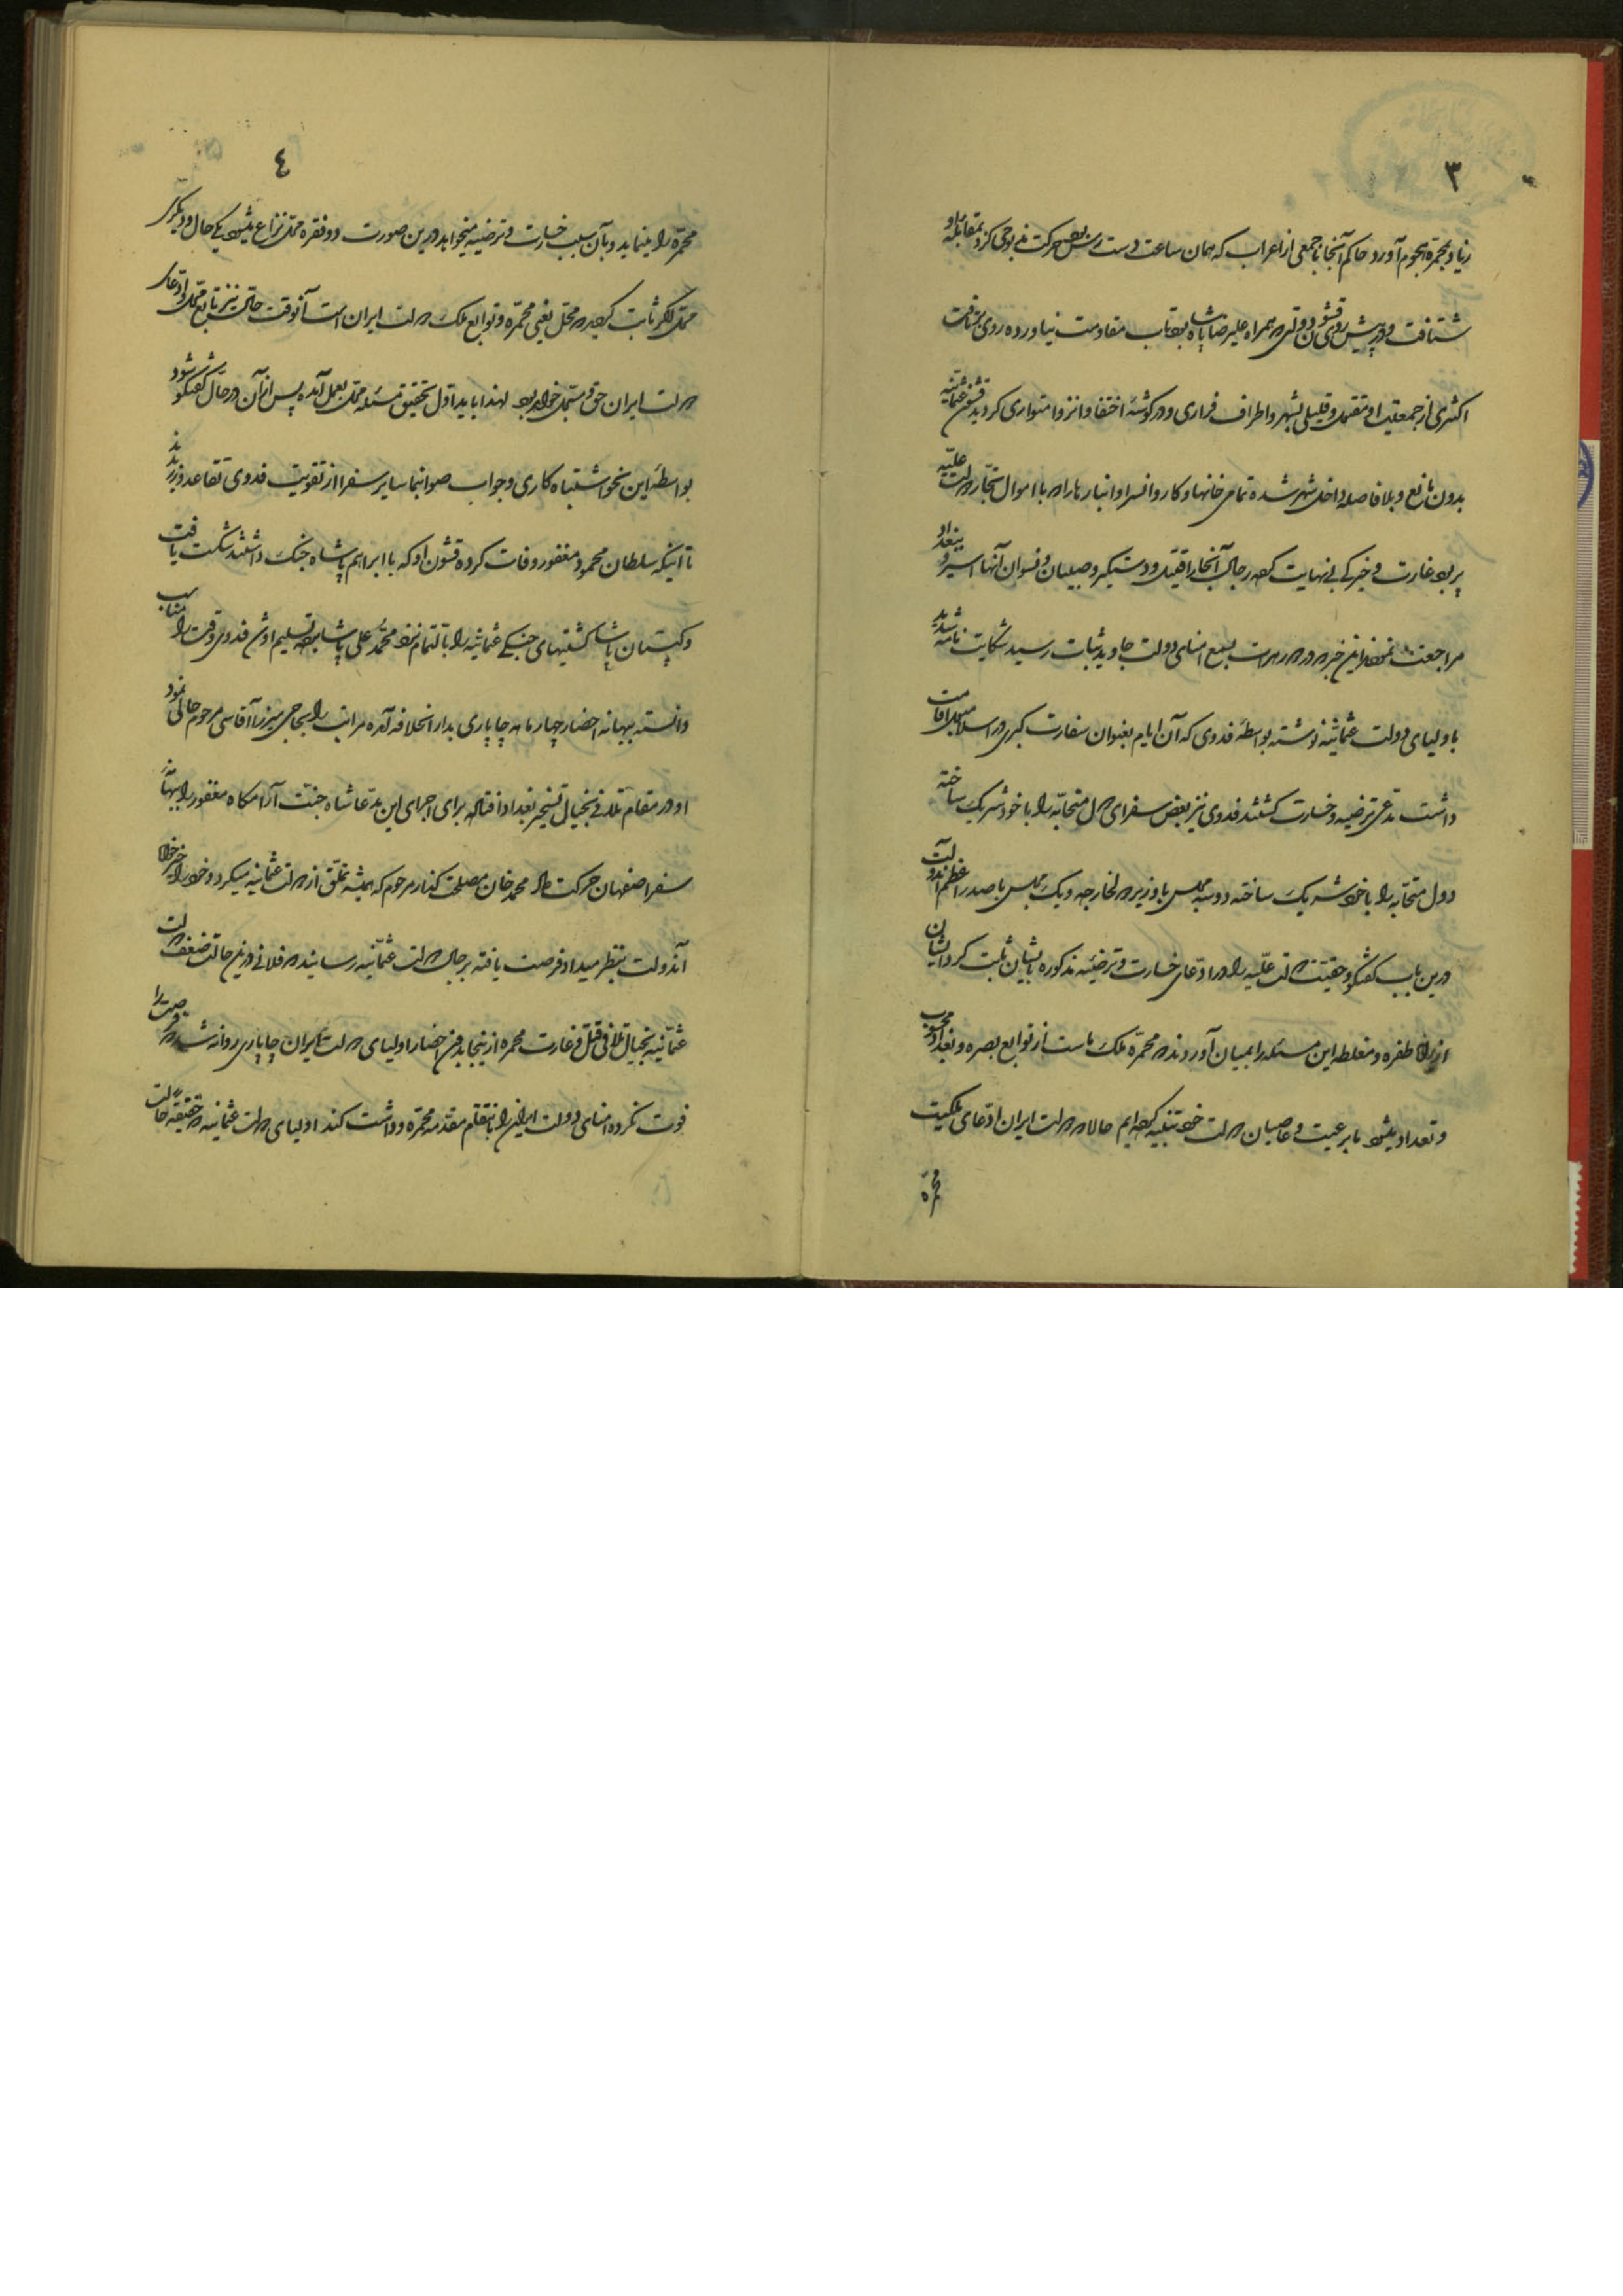 ۳
زیاد بمحمره هجوم آورد حاکم آنجا با جمعی از اعراب که همان ساعت دست رس بود حرکت مذبوحی کرد بمقابله او
شتافت و در پیش روی قشون دولتی که همراه علیرضا پاشا بود تاب مقاومت نیاورده روی برتافت
اکثری از جمعیت او مقتول و قلیلی بشهر و اطراف فراری و در گوشهٔ اختفا و انزوا متواری گردید قشون عثمانیه
بدون مانع و بلا فاصله داخل شهر شده تمامی خانها و کاروانسرا و انبارها را که با اموال تجار دولت علیّه
پر بود غارت و خیرگی بی نهایت کرده رجال آنجا را قتیل و دستگیر و صبیان و نسوان آنها اسیر و ببغداد
مراجعت نمودند این خبر که در هرات بسمع امنای دولت جاوید ثبات رسید شکایت نامه شدید
باولیای دولت عثمانیه نوشته بواسطه فدوی که آن ایام بعنوان سفارت کبری در اسلامبول اقامت
داشت مدعی ترضیه و خسارت گشتند فدوی نیز بعض سفرای دول متحابّه را با خود شریک ساخته
دول متحابّه را با خود شریک ساخته دو سه مجلس با وزیر خارجه و یک مجلس با صدر اعظم آندولت
درین باب گفتگو و حقیّت دولت علّیه را در ادعای خسارت و ترضیّه مذکوره بایشان ثابت کرد ایشان
از راه طفره و مغلطه این مسئله را بمیان آوردند که محمرّه ملک ماست از توابع بصره و بغداد محسوب
و تعداد میشود ما برعیت و عاصیان دولت خود تنبیه کرده ایم حالا که دولت ایران ادّعای ملکیت
محمره
۴
محمرّه را مینماید و بآن سبب خسارت و ترضیه میخواهد درین صورت دو فقره محل نزاع میشود یکی حال و دیگری
محل اگر ثابت گردید که محل یعنی محمره و توابع ملک دولت ایران است آنوقت حال نیز تابع محل و ادعای
دولت ایران حق و مستحمل خواهد بود لهذا باید اول تحقیق مسئله محل بعمل آمده پس از آن در حال گفتگو شود
بواسطهٔ این نحو اشتباه کاری و جواب صواب نما سایر سفرا از تقویت فدوی تقاعد ورزیدند
تا اینکه سلطان محمود مغفور وفات کرده قشون او که با ابراهیم پاشاه جنگ داشتند شکست یافت
و کپتان پاشا کشتیهای جنگی عثمانیّه را بالتمام نزد محمّد علی پاشا برده تسلیم او شد فدوی وقت را مناسب
دانسته ببهانه احضار چهار ماهه چاپاری بدار الخلافه آمده مراتب را بحاجی میرزا آقاسی مرحوم حالی نمود
او در مقام تلافی بخیال تسخیر بغداد افتاده برای اجرای این مدّعا شاه جنّت آرامگاه مغفور را ببهانه
سفر اصفهان حرکت داد محمد خان مصلحت گذار مرحوم که همیشه تملّق از دولت عثمانیه میکرد و خود را خیرخواه
آندولت بنظر میداد فرصت یافته برجال دولت عثمّانیه رسانید که فلانی درین حالت ضعف دولت
عثمّانیه بخیال تلافی قتل و غارت محمره از اینجا بدون احضار اولیای دولت ایران چاپاری روانه شد که فرصت را
فوت نکرده امنای دولت ایران را بانتقام مقدمه محمره وا داشت کند اولیای دولت عثمانیه حقیقه حالت